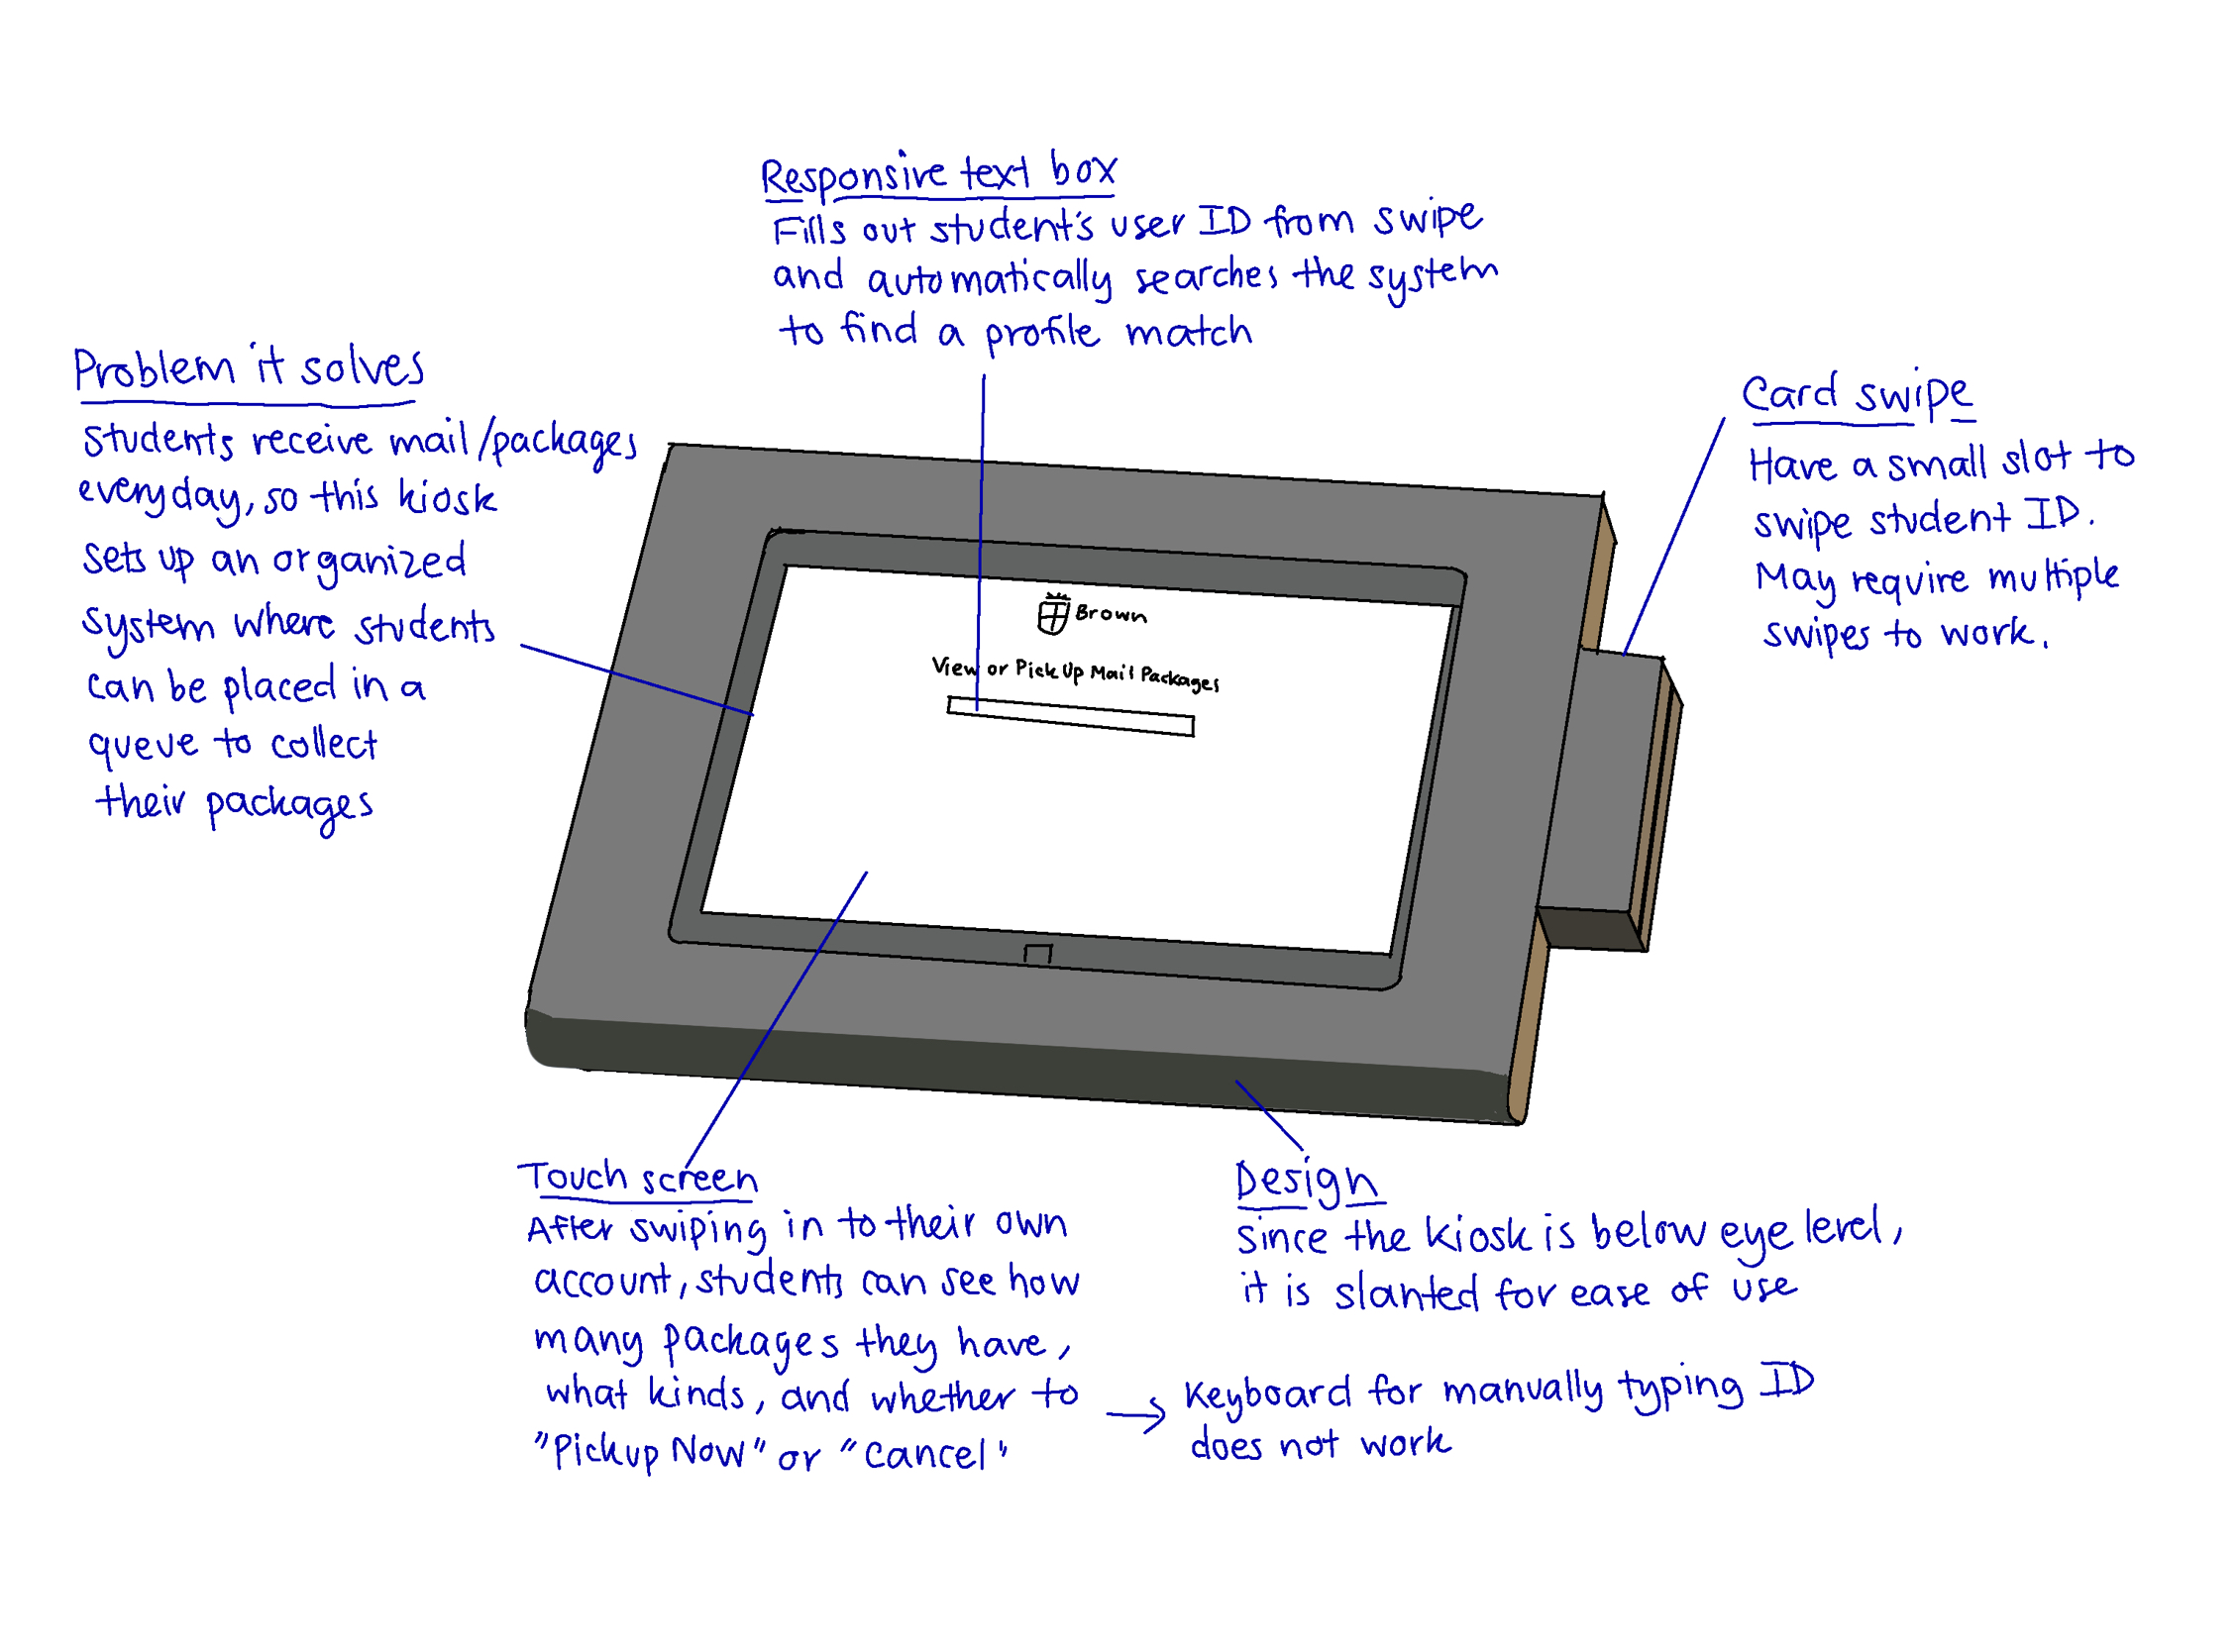 Responsive text box
Fills out student's user ID from swipe
and automatically searches the system
to find a profile match
Problem it solves
students receive mail/packages
everyday, so this kiosk
sets up an organized
system where students
can be placed in a
queue to collect
their packages
Card swipe
Have a small slot to
swipe student ID.
May require multiple
swipes to work.
Brown
View or Pick Up Mail Packages
Touch screen
After swiping in to their own
account, students can see how
many packages they have,
what kinds, and whether to
"Pickup Now" or "Cancel"
Design
Since the kiosk is below eye level,
it is slanted for ease of use
→ Keyboard for manually typing ID
does not work